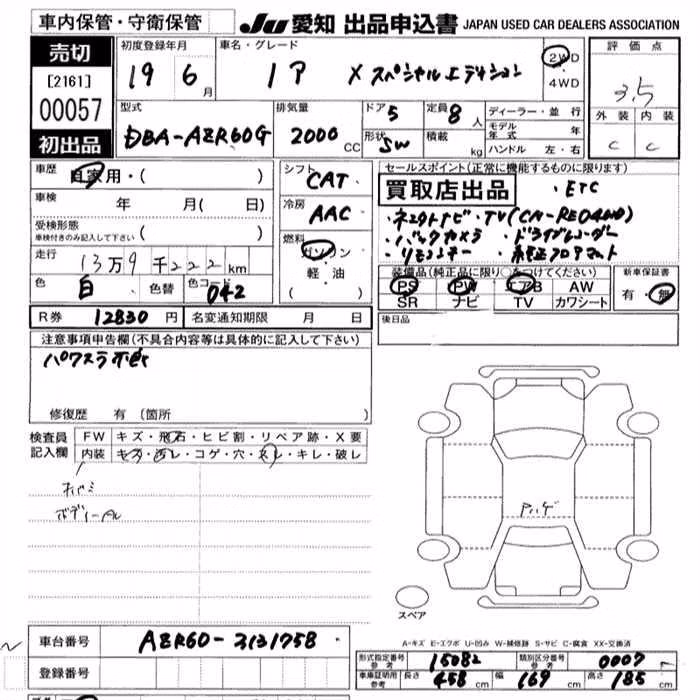 車内保管・守衛保管 JU 愛知 出品申込書 JAPAN USED CAR DEALERS ASSOCIATION
売切 [2161] 00057 初出品
初度登録年月 19 6 月
車名・グレード X スペシャルエディション
2WD ・ 4WD
評価点 3.5
外装 内装
C C
型式 DBA-AZR60G
排気量 2000 CC
ドア 5 定員 8 人
形状 SW 積載 kg
ディーラー・並行
モデル年式 年
ハンドル 左・右
車歴 自家用・( )
車検 年 月( 日)
受検形態 車検付きのみ記入して下さい ( )
走行 13万9千222km
色 白 色替 色コード 042
シフト CAT
冷房 AAC
燃料 ガソリン・軽油 ( )
セールスポイント(正常に機能するものに限ります)
買取店出品 ・ETC
・バックカメラ ・ドライブレコーダー
装備品(純正品に限り○をつけてください) 新車保証書
PS PW エアB AW
SR ナビ TV カワシート
有・無
R券 12830 円 名変通知期限 月 日
後日品
注意事項申告欄(不具合内容等は具体的に記入して下さい)
パワスラ不良
修復歴 有(箇所 )
検査員記入欄
FW キズ・飛石・ヒビ割・リペア跡・X要
内装 キズ・汚レ・コゲ・穴・スレ・キレ・破レ
アハゲ
スペア
車台番号 AZR60-3131758
登録番号
A-キズ E-エクボ U-凹み W-補修跡 S-サビ C-腐食 XX-交換済
形式指定番号 参考 15082 類別区分番号 参考 0007
車庫証明用 参考 長さ 458 cm 幅 169 cm 高さ 185 cm